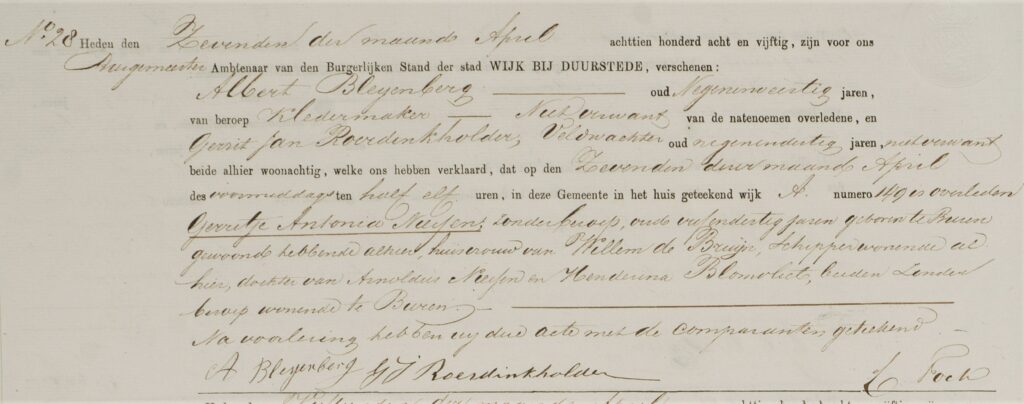 No. 28 Heden den Zevenden der maand April achttien honderd acht en vijftig, zijn voor ons
Burgemeester Ambtenaar van den Burgerlijken Stand der stad WIJK BIJ DUURSTEDE, verschenen:
Albert Bleyenberg oud Negenenveertig jaren,
van beroep Kledermaker Niet verwant van de natenoemen overledene, en
Gerrit Jan Roerdinkholder, Veldwachter oud negenendertig jaren, niet verwant
beide alhier woonachtig, welke ons hebben verklaard, dat op den Zevenden dezer maand April
des voormiddags ten half elf uren, in deze Gemeente in het huis geteekend wijk A. numero 149 is overleden
Gerritje Antonia Neefen, zonder beroep, oud dertig jaren geboren te Buren
gewoond hebbende alhier, huisvrouw van Willem de Bruijn, Schipper wonende al
hier, dochter van Arnoldus Neefen en Henderina Blomvliet, beiden Zonder
beroep wonende te Buren.
Na voorlezing hebben wij deze acte met de comparanten geteekend
A Bleyenberg GJ Roerdinkholder Foch
der maand